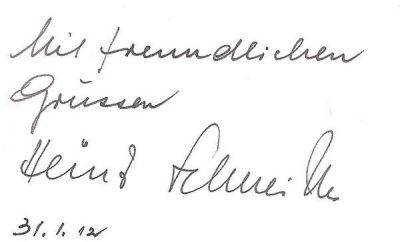 Mit freundlichen
Grüssen
Heinz Schneiter
31.1.12